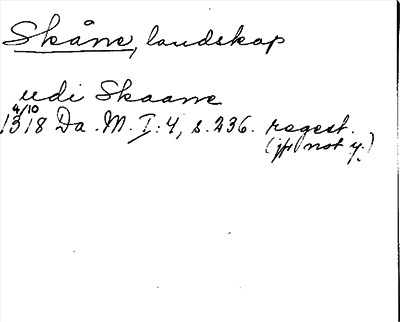 Skåne, landskap
udi Skaane
4/10
1318 Da. M. I: 4, s. 236. regest.
(jfr not y.)